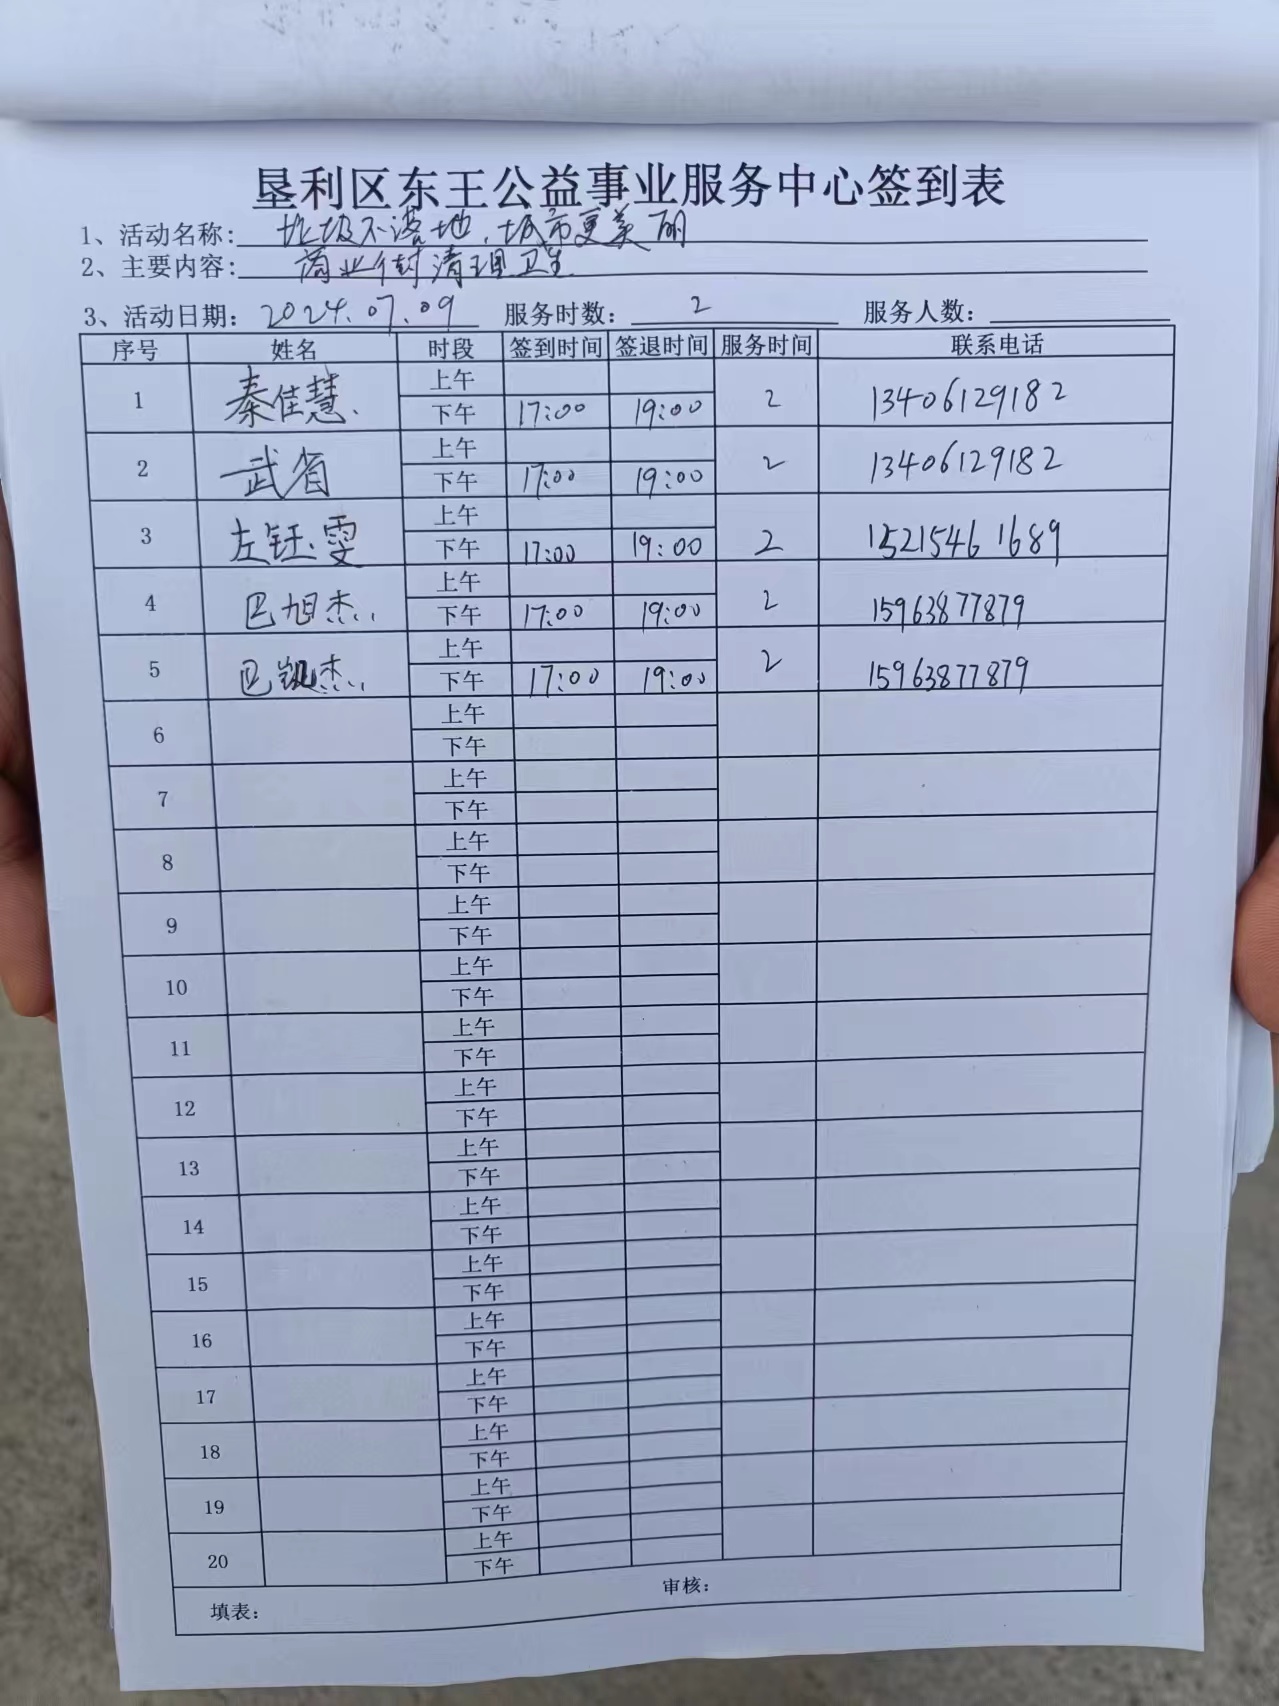 垦利区东王公益事业服务中心签到表
1、活动名称: 垃圾不落地，城市更美丽
2、主要内容: 商业街清理卫生
3、活动日期: 2024.07.09 服务时数: 2 服务人数:
序号 姓名 时段 签到时间 签退时间 服务时间 联系电话
1 秦佳慧 上午 2 13406129182
下午 17:00 19:00
2 武省 上午 2 13406129182
下午 17:00 19:00
3 左钰雯 上午 2 15215461689
下午 17:00 19:00
4 巴旭杰 上午 2 15963877879
下午 17:00 19:00
5 巴凯杰 上午 2 15963877879
下午 17:00 19:00
6 上午
下午
7 上午
下午
8 上午
下午
9 上午
下午
10 上午
下午
11 上午
下午
12 上午
下午
13 上午
下午
14 上午
下午
15 上午
下午
16 上午
下午
17 上午
下午
18 上午
下午
19 上午
下午
20 上午
下午
填表: 审核: